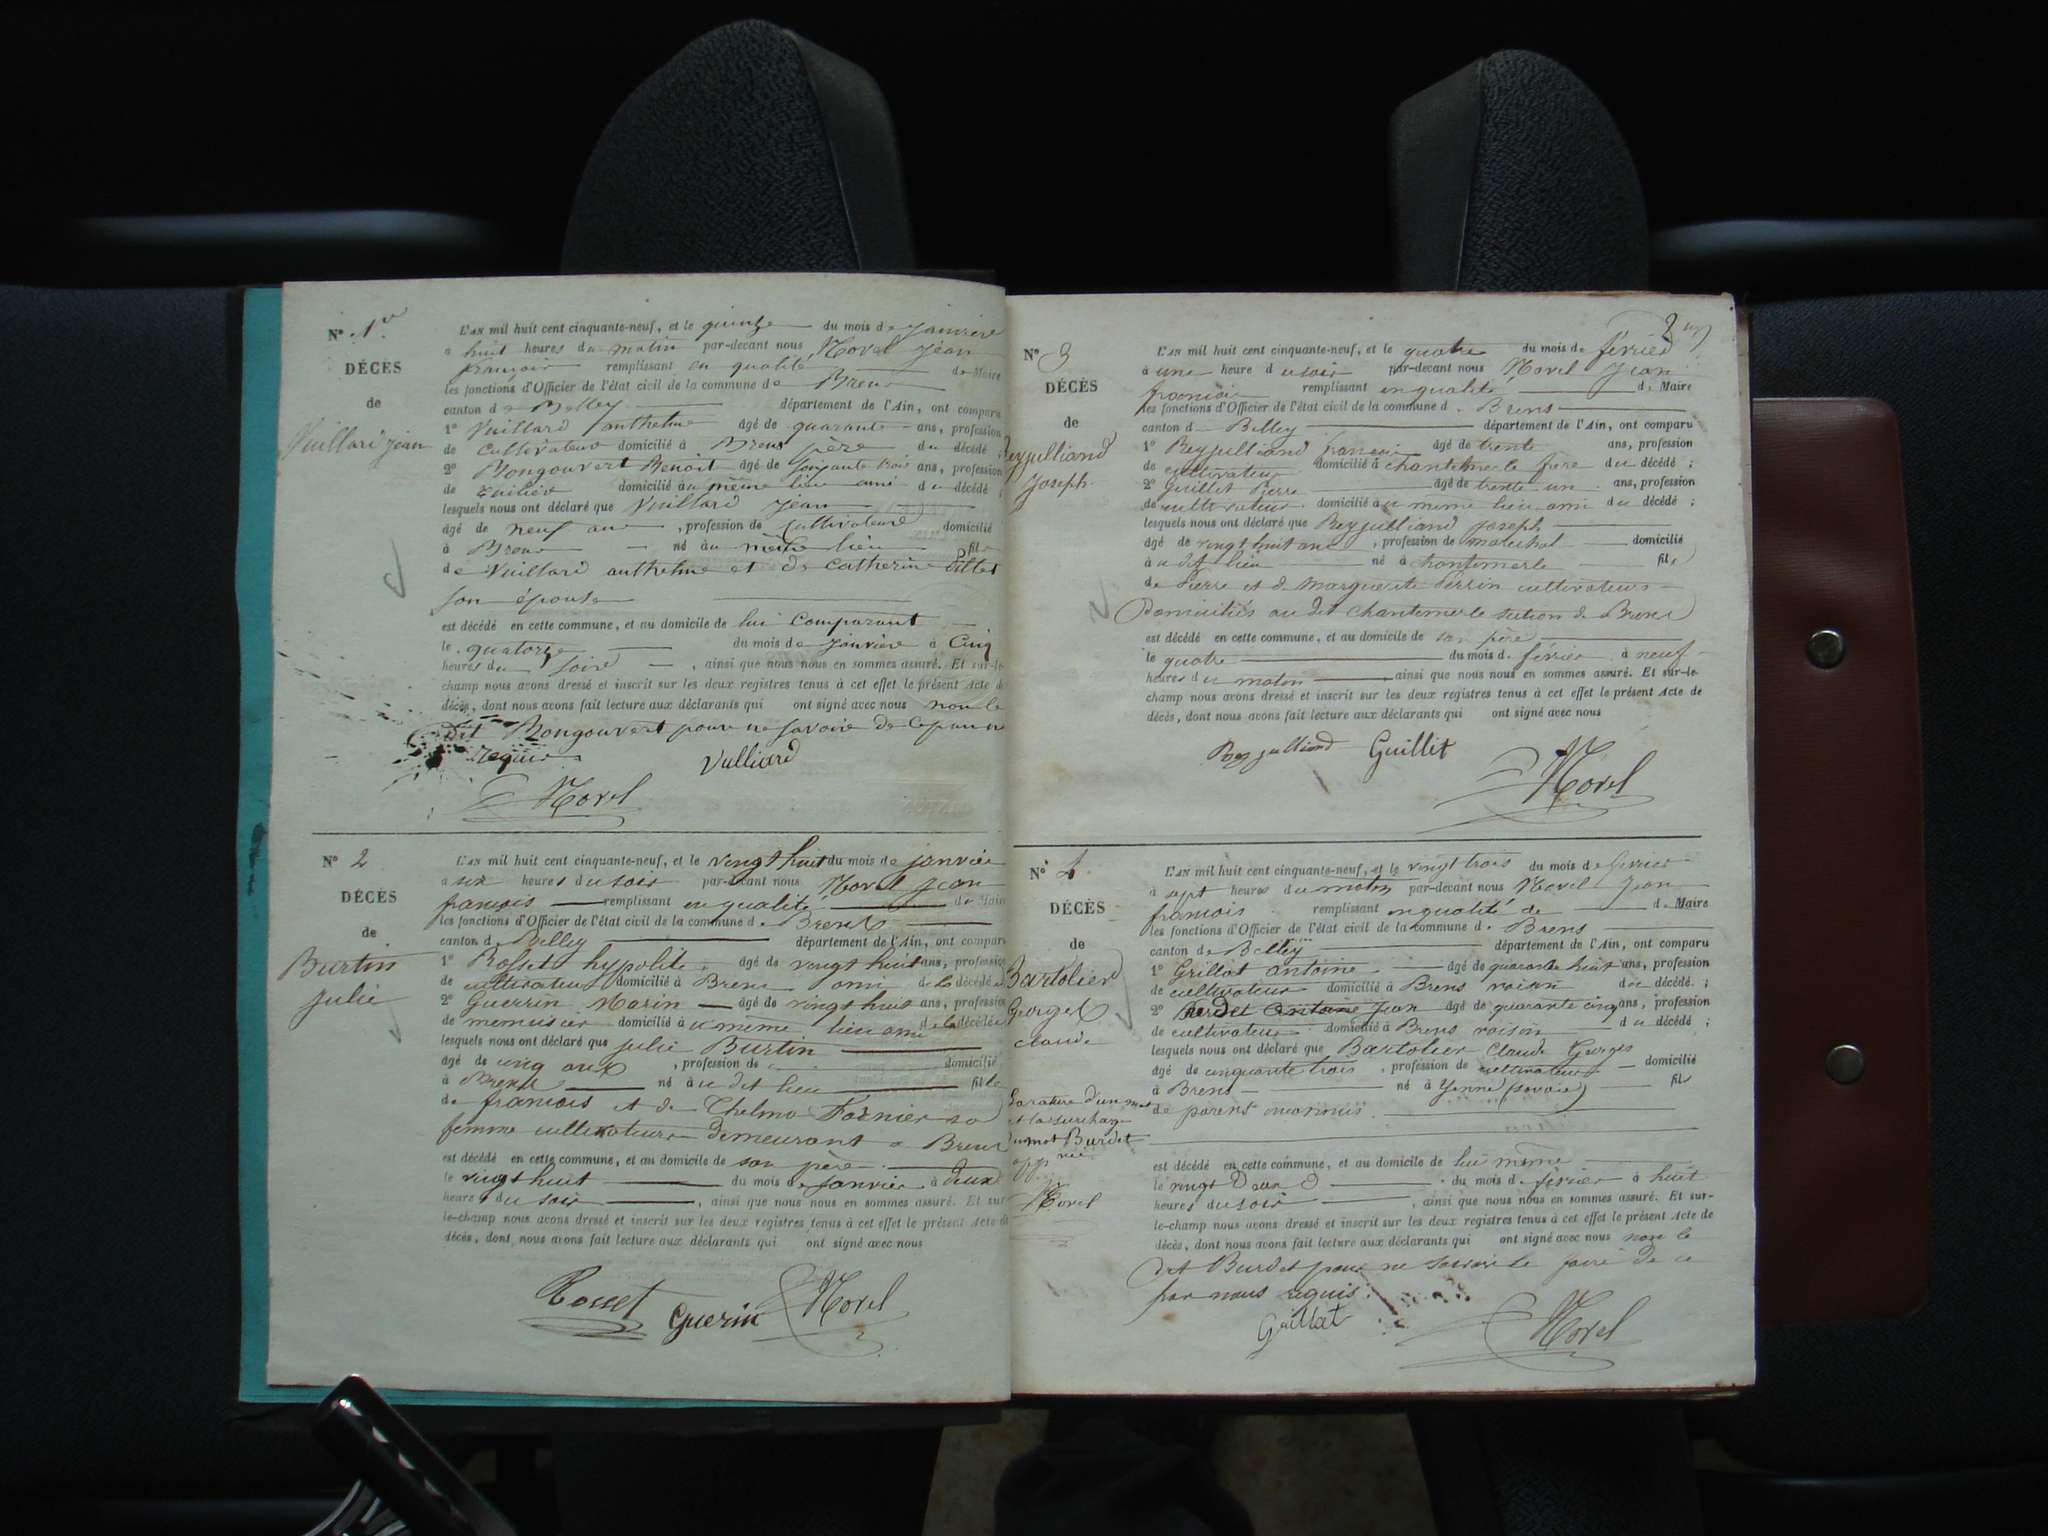 N° 1er
DÉCÈS
de
Vuillard Jean
L'AN mil huit cent cinquante-neuf, et le quinze du mois de janvier
à huit heures du matin par-devant nous Morel Jean
françois remplissant en qualité de Maire
les fonctions d'Officier de l'état civil de la commune de Brens
canton de Belley département de l'Ain, ont comparu
1° Vuillard anthelme âgé de quarante ans, profession
de cultivateur domicilié à Brens père du décédé ;
2° Bongouvert Benoit âgé de soixante trois ans, profession
de domicilié au même lieu ami du décédé ;
lesquels nous ont déclaré que Vuillard Jean
âgé de neuf ans, profession de Cultivateur domicilié
à Brens né au même lieu fils
de Vuillard anthelme et de Catherine
son épouse
est décédé en cette commune, et au domicile de lui Comparant
le quatorze du mois de janvier à Cinq
heures du soir, ainsi que nous nous en sommes assuré. Et sur-le-
champ nous avons dressé et inscrit sur les deux registres tenus à cet effet le présent Acte de
décès, dont nous avons fait lecture aux déclarants qui ont signé avec nous non le
dit Bongouvert pour ne savoir de ce par nous
requis
Vulliard
Morel
N° 2
DÉCÈS
de
Burtin
Julie
L'AN mil huit cent cinquante-neuf, et le vingt huit du mois de janvier
à six heures du soir par-devant nous Morel Jean
françois remplissant en qualité de Maire
les fonctions d'Officier de l'état civil de la commune de Brens
canton de Belley département de l'Ain, ont comparu
1° Rosset hypolite âgé de vingt huit ans, profession
de cultivateur domicilié à Brens ami de la décédée
2° Guerrin Marin âgé de vingt huit ans, profession
de menuisier domicilié au même lieu ami de la décédée
lesquels nous ont déclaré que julie Burtin
âgé de cinq ans, profession de domicilié
à Brens né au dit lieu fille
de francois et de Thelma Fornier sa
femme cultivateurs Demeurant a Brens
est décédé en cette commune, et au domicile de son père
le vingt huit du mois de janvier à deux
heures du soir, ainsi que nous nous en sommes assuré. Et sur
le-champ nous avons dressé et inscrit sur les deux registres tenus à cet effet le présent Acte de
décès, dont nous avons fait lecture aux déclarants qui ont signé avec nous
Rosset Guerin Morel
N° 3
DÉCÈS
de
Reyjulliand
Joseph
L'AN mil huit cent cinquante-neuf, et le quatre du mois de férier
à une heure du soir par-devant nous Morel Jean
francois remplissant en qualité de Maire
les fonctions d'Officier de l'état civil de la commune de Brens
canton de Belley département de l'Ain, ont comparu
1° Reyjulliand francois âgé de trente ans, profession
de cultivateur domicilié à chantemerle frère du décédé ;
2° Guillet Pierre âgé de trente un ans, profession
de cultivateur domicilié au même lieu ami du décédé ;
lesquels nous ont déclaré que Reyjulliand Joseph
âgé de vingt huit ans, profession de marechal domicilié
à au dit lieu né à chantemerle fils
de Pierre et de Marguerite Perrin cultivateurs
Domiciliés au dit chantemerle section de Brens
est décédé en cette commune, et au domicile de son père
le quatre du mois de février à neuf
heures du matin ainsi que nous nous en sommes assuré. Et sur-le-
champ nous avons dressé et inscrit sur les deux registres tenus à cet effet le présent Acte de
décès, dont nous avons fait lecture aux déclarants qui ont signé avec nous
Reyjulliand Guillit
Morel
N° 4
DÉCÈS
de
Bartolier
Georges
claude
La rature d'un mot
et la surcharge
du mot Burdet
Morel
L'AN mil huit cent cinquante-neuf, et le vingt trois du mois de ferrier
à sept heures du matin par-devant nous Morel Jean
francois remplissant en qualité de de Maire
les fonctions d'Officier de l'état civil de la commune de Brens
canton de Belley département de l'Ain, ont comparu
1° Grillat antoine âgé de quarante huit ans, profession
de cultivateur domicilié à Brens voisin du décédé ;
2° Burdet Antoine Jean âgé de quarante cinq ans, profession
de cultivateur domicilié à Brens voisin du décédé ;
lesquels nous ont déclaré que Bartolier Claude Georges
âgé de cinquante trois, profession de cultivateur domicilié
à Brens né à Yenne (savoie) fils
de parens inconnus
est décédé en cette commune, et au domicile de lui même
le vingt Deux du mois de février à huit
heures du soir, ainsi que nous nous en sommes assuré. Et sur-
le-champ nous avons dressé et inscrit sur les deux registres tenus à cet effet le présent Acte de
décès, dont nous avons fait lecture aux déclarants qui ont signé avec nous non le
dit Burdet pour ne savoir le faire de ce
par nous requis
Grillat
Morel